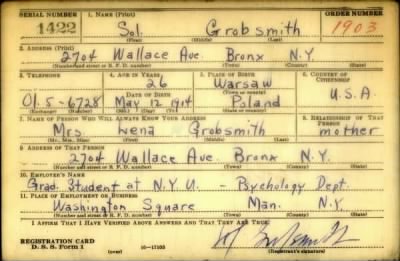 SERIAL NUMBER 1. NAME (Print) ORDER NUMBER
1422 Sol Grobsmith 1903
(First) (Middle) (Last)
2. ADDRESS (Print)
2704 Wallace Ave. Bronx N.Y.
(Number and street or R. F. D. number) (Town) (County) (State)
3. TELEPHONE 4. AGE IN YEARS 5. PLACE OF BIRTH 6. COUNTRY OF CITIZENSHIP
26 Warsaw
DATE OF BIRTH (Town or county) U.S.A.
Ol. 5-6728 May 12 1914 Poland
(Exchange) (Number) (Mo.) (Day) (Yr.) (State or country)
7. NAME OF PERSON WHO WILL ALWAYS KNOW YOUR ADDRESS 8. RELATIONSHIP OF THAT PERSON
Mrs. Lena Grobsmith mother
(Mr., Mrs., Miss) (First) (Middle) (Last)
9. ADDRESS OF THAT PERSON
2704 Wallace Ave. Bronx N.Y.
(Number and street or R. F. D. number) (Town) (County) (State)
10. EMPLOYER'S NAME
Grad. Student at N.Y.U. - Psychology Dept.
11. PLACE OF EMPLOYMENT OR BUSINESS
Washington Square Man. N.Y.
(Number and street or R. F. D. number) (Town) (County) (State)
I AFFIRM THAT I HAVE VERIFIED ABOVE ANSWERS AND THAT THEY ARE TRUE.
REGISTRATION CARD
D. S. S. Form 1 (over) 16-17105 (Registrant's signature)